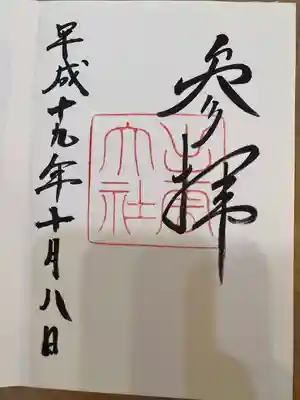 参拝
出雲大社
平成十九年十月八日